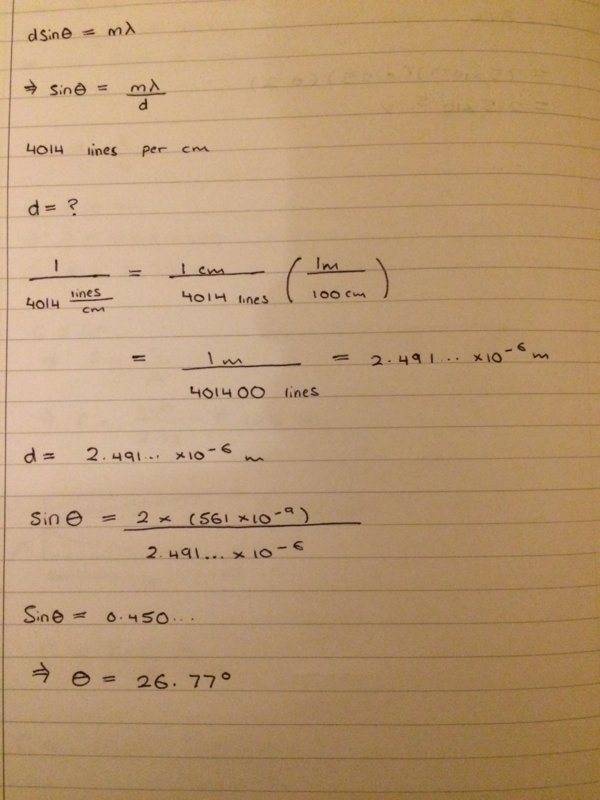 dsinθ = mλ
⇒ sinθ = mλ / d
4014 lines per cm
d = ?
1 / 4014 lines/cm = 1 cm / 4014 lines (1m / 100 cm)
= 1m / 401400 lines = 2.491... ×10⁻⁶ m
d = 2.491... ×10⁻⁶ m
Sin θ = 2 × (561 × 10⁻⁹) / 2.491... × 10⁻⁶
Sinθ = 0.450...
⇒ θ = 26.77°